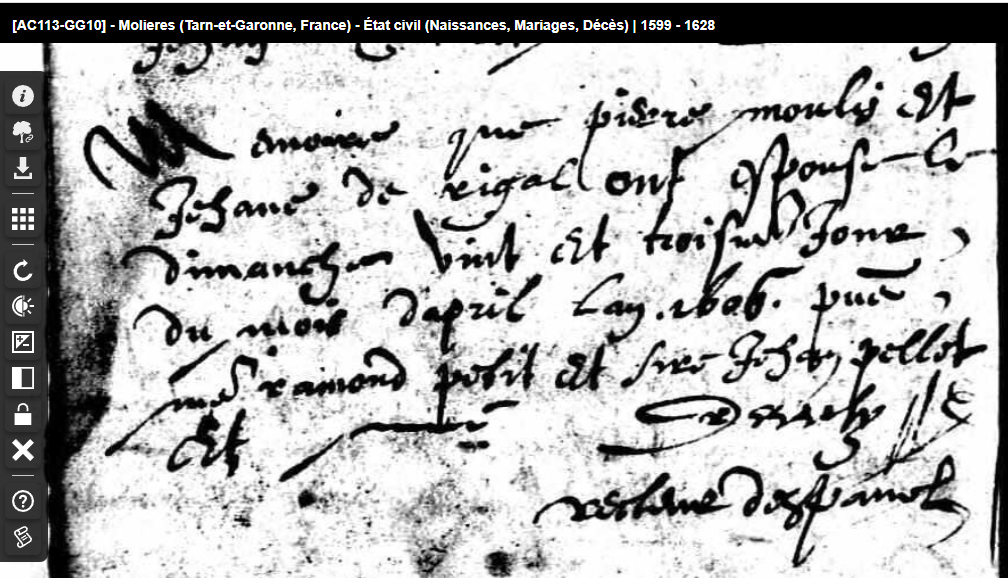 [AC113-GG10] - Molieres (Tarn-et-Garonne, France) - État civil (Naissances, Mariages, Décès) | 1599 - 1628
Memoire que pierre moulis Et
Jehane de rigal ont espouse le
dimanche vint Et troisie Jour
du mois dapril Lan .1606. pns
ramond petit Et sire Jehan pellet
Et
recteur despanel